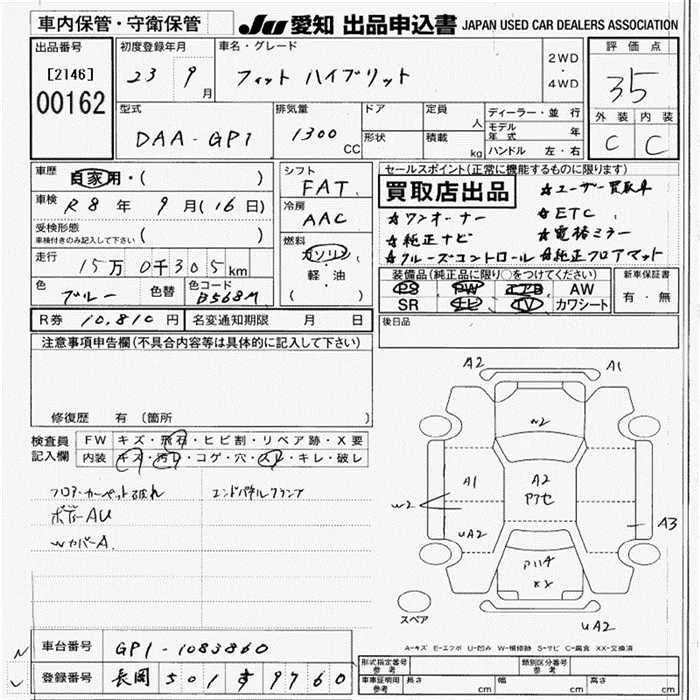 車内保管・守衛保管
JU 愛知 出品申込書 JAPAN USED CAR DEALERS ASSOCIATION
出品番号 [2146] 00162
初度登録年月 23 9月
車名・グレード フィット ハイブリット
2WD ・ 4WD
評価点 35
外装 内装
C C
型式 DAA-GP1
排気量 1300 CC
ドア 形状
定員 人
積載 kg
ディーラー・並行
モデル年式 年
ハンドル 左・右
車歴 自家用・( )
車検 R8年 9月(16日)
受検形態
車検付きのみ記入して下さい ( )
走行 15万0千305km
色 ブルー 色替 色コード B568M
シフト FAT
冷房 AAC
燃料 ガソリン
軽・油
( )
セールスポイント(正常に機能するものに限ります)
買取店出品
☆ユーザー買取車
☆ワンオーナー ☆ETC
☆純正ナビ ☆電格ミラー
☆クルーズコントロール ☆純正フロアマット
装備品(純正品に限り○をつけてください)
PS PW エアB AW
SR ナビ TV カワシート
新車保証書
有・無
R券 10,810円 名変通知期限 月 日
後日品
注意事項申告欄(不具合内容等は具体的に記入して下さい)
修復歴 有(箇所
検査員記入欄
FW キズ・飛石・ヒビ割・リペア跡・X要
内装 キズ・汚れ・コゲ・穴・スレ・キレ・破レ
フロアカーペット破れ エンドパネルクランプ
ボディーAU
WカバーA.
A2 A1
W2
A1 A2
アクセ
W2
UA2 A3
スペア
UA2
A-キズ E-エクボ U-凹み W-補修跡 S-サビ C-腐食 XX-交換済
車台番号 GP1-1083860
登録番号 長岡 501 す 9760
形式指定番号 参考
類別区分番号 参考
車車証明用 参考 長さ cm 幅 cm 高さ cm